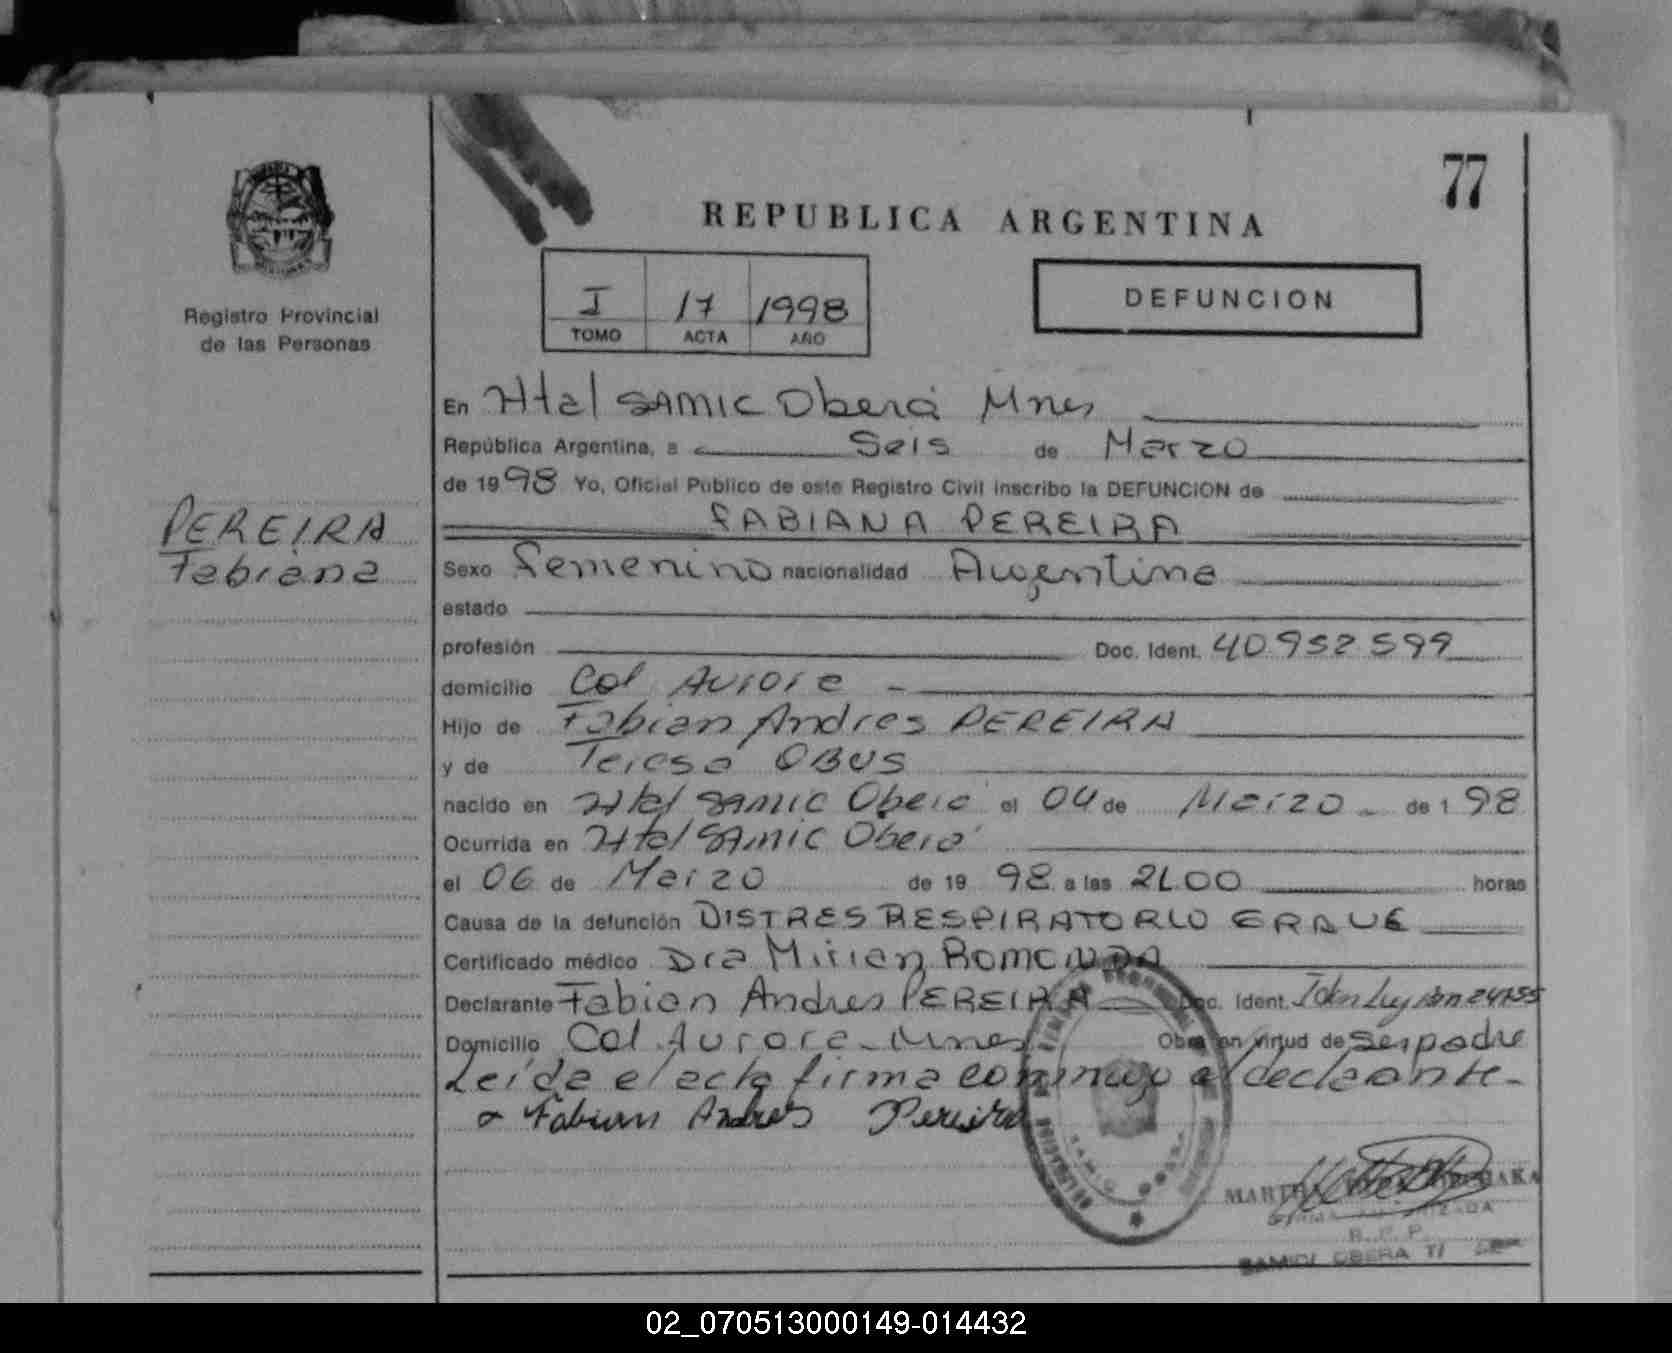 77
REPUBLICA ARGENTINA
Registro Provincial
de las Personas
I 17 1998
TOMO ACTA AÑO
DEFUNCION
PEREIRA
Fabiana
En Htal SAMIC Oberá Mnes
República Argentina, a Seis de Marzo
de 1998 Yo, Oficial Público de este Registro Civil inscribo la DEFUNCION de
FABIANA PEREIRA
Sexo femenino nacionalidad Argentina
estado
profesión Doc. Ident. 40.952.599
domicilio Col Aurora -
Hijo de Fabian Andres PEREIRA
y de Teresa OBUS
nacido en Htal SAMIC Oberá el 04 de Marzo de 1 98
Ocurrida en Htal SAMIC Oberá
el 06 de Marzo de 19 98 a las 21.00 horas
Causa de la defunción DISTRES RESPIRATORIO GRAVE
Certificado médico Dra Mirian
Declarante Fabian Andres PEREIRA Doc. Ident.
Domicilio Col. Aurora - Mnes Obra en virtud de ser padre
Leída el acta firma conmigo el declarante-
Fabian Andres Pereira
MARTHA
R. P. P.
SAMIC OBERA
02_070513000149-014432